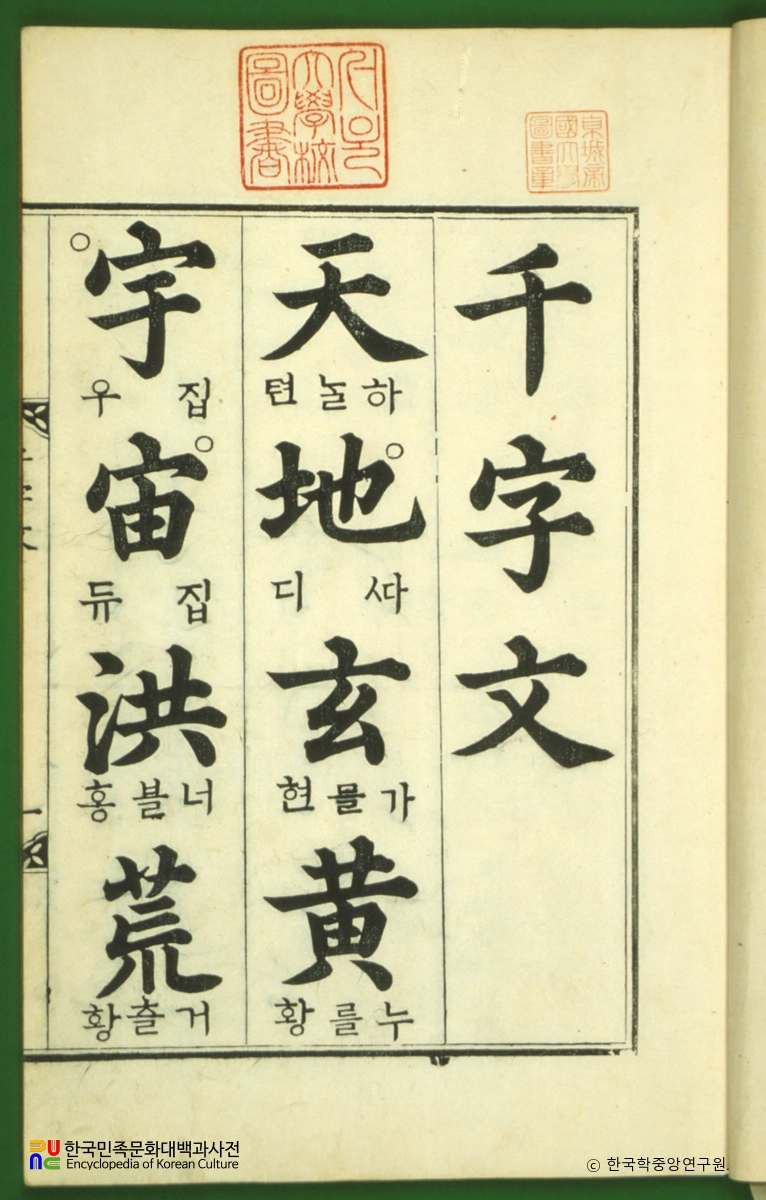 서울
大學校
圖書
京城帝
國大學
圖書章
千字文
天
하ᄂᆞᆯ텬
地
ᄯᅡ디
玄
가믈현
黃
누를황
宇
집우
宙
집듀
洪
너블홍
荒
거츨황
한국민족문화대백과사전
Encyclopedia of Korean Culture
© 한국학중앙연구원